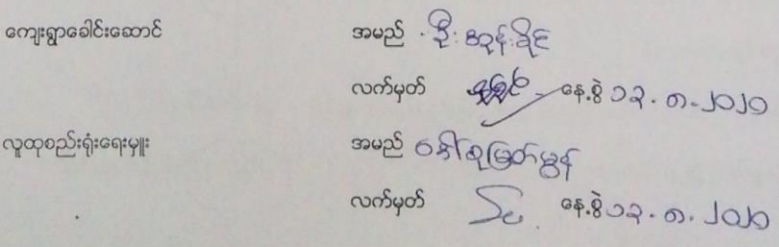 ကျေးရွာခေါင်းဆောင် အမည် ဦးထွန်းခိုင်
လက်မှတ် နေ့စွဲ ၁၃.၈.၂၀၂၀
လူထုစည်းရုံးရေးမှူး အမည် ဒေါ်စုမြတ်မွန်
လက်မှတ် နေ့စွဲ ၁၃.၈.၂၀၂၀